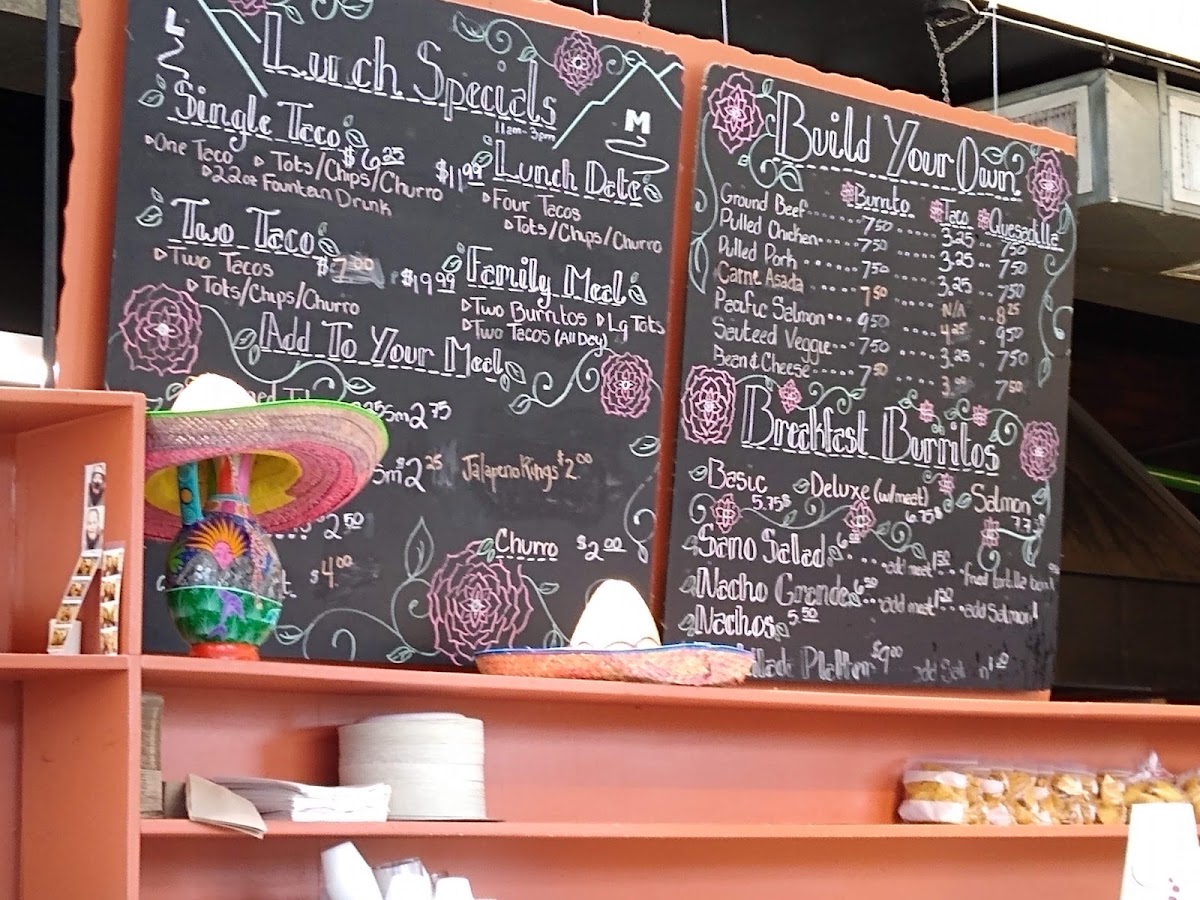 Lunch Specials
11am-3pm
Single Taco
$6.25
▹One Taco ▹Tots/Chips/Churro
▹22oz Fountain Drink
Two Taco
$7.00
▹Two Tacos
▹Tots/Chips/Churro
M
$11.99 Lunch Date
▹Four Tacos
▹Tots/Chips/Churro
$19.99 Family Meal
▹Two Burritos ▹Lg Tots
▹Two Tacos (All Day)
Add To Your Meal
sm 2.75
sm $2.25 Jalapeno Kings $2.00
2.50
$4.00
Churro $2.00
Build Your Own
Burrito Taco Quesadilla
Ground Beef....... 7.50 ..... 3.25 .. 7.50
Pulled Chicken..... 7.50 ..... 3.25 .. 7.50
Pulled Pork ...... 7.50 ..... 3.25 .. 7.50
Carne Asada ...... 7.50 ..... N/A .. 8.25
Pacific Salmon... 9.50 ..... 4.25 .. 9.50
Sauteed Veggie... 7.50 ..... 3.25 .. 7.50
Bean & Cheese..... 7.50 .... 7.50
Breakfast Burritos
Basic Deluxe (w/meat) Salmon
5.75 6.75 7.75
Sano Salad add meat 1.50... fried tortilla bowl
Nacho Grande 6.50... add meat 1.50... add Salmon
Nachos 5.50
Platter $9.00